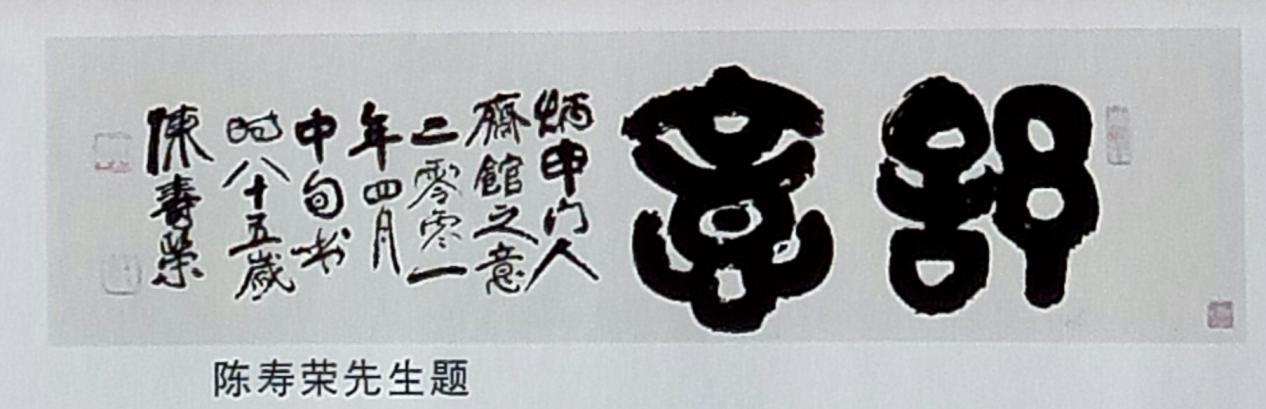 舒意
炳申门人
齋館之意
二零零一
年四月
中旬书
时八十五歲
陳壽榮
陈寿荣先生题